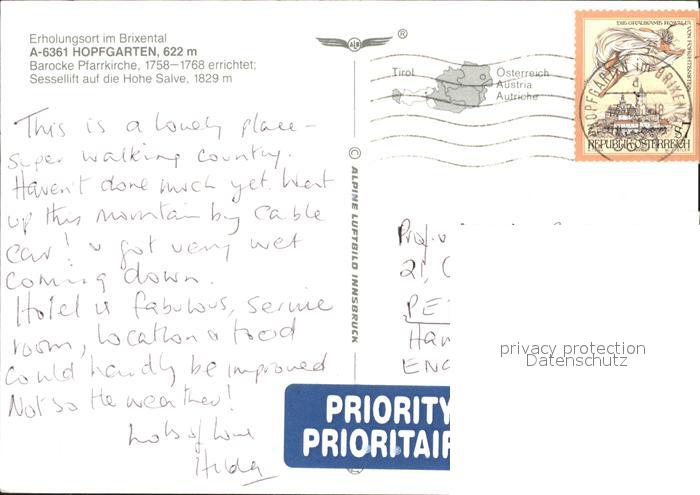 Erholungsort im Brixental
A-6361 HOPFGARTEN, 622 m
Barocke Pfarrkirche, 1758—1768 errichtet;
Sessellift auf die Hohe Salve, 1829 m
This is a lovely place -
super walking country.
Haven't done much yet. Went
up this mountain by cable
car! & got very wet
coming down.
Hotel is fabulous, service
room, location & food
could hardly be improved.
Not so the weather!
Lots of love
Hilda
®
Tirol
Österreich
Austria
Autriche
© ALPINE LUFTBILD INNSBRUCK
DIE GRAUSAME ROSALIA
VON FORCHTENSTEIN
HOPFGARTEN IM BRIXENTAL
S 7
REPUBLIK ÖSTERREICH
Prof.
21,
PE
Ham
ENG
privacy protection
Datenschutz
PRIORITY
PRIORITAIR